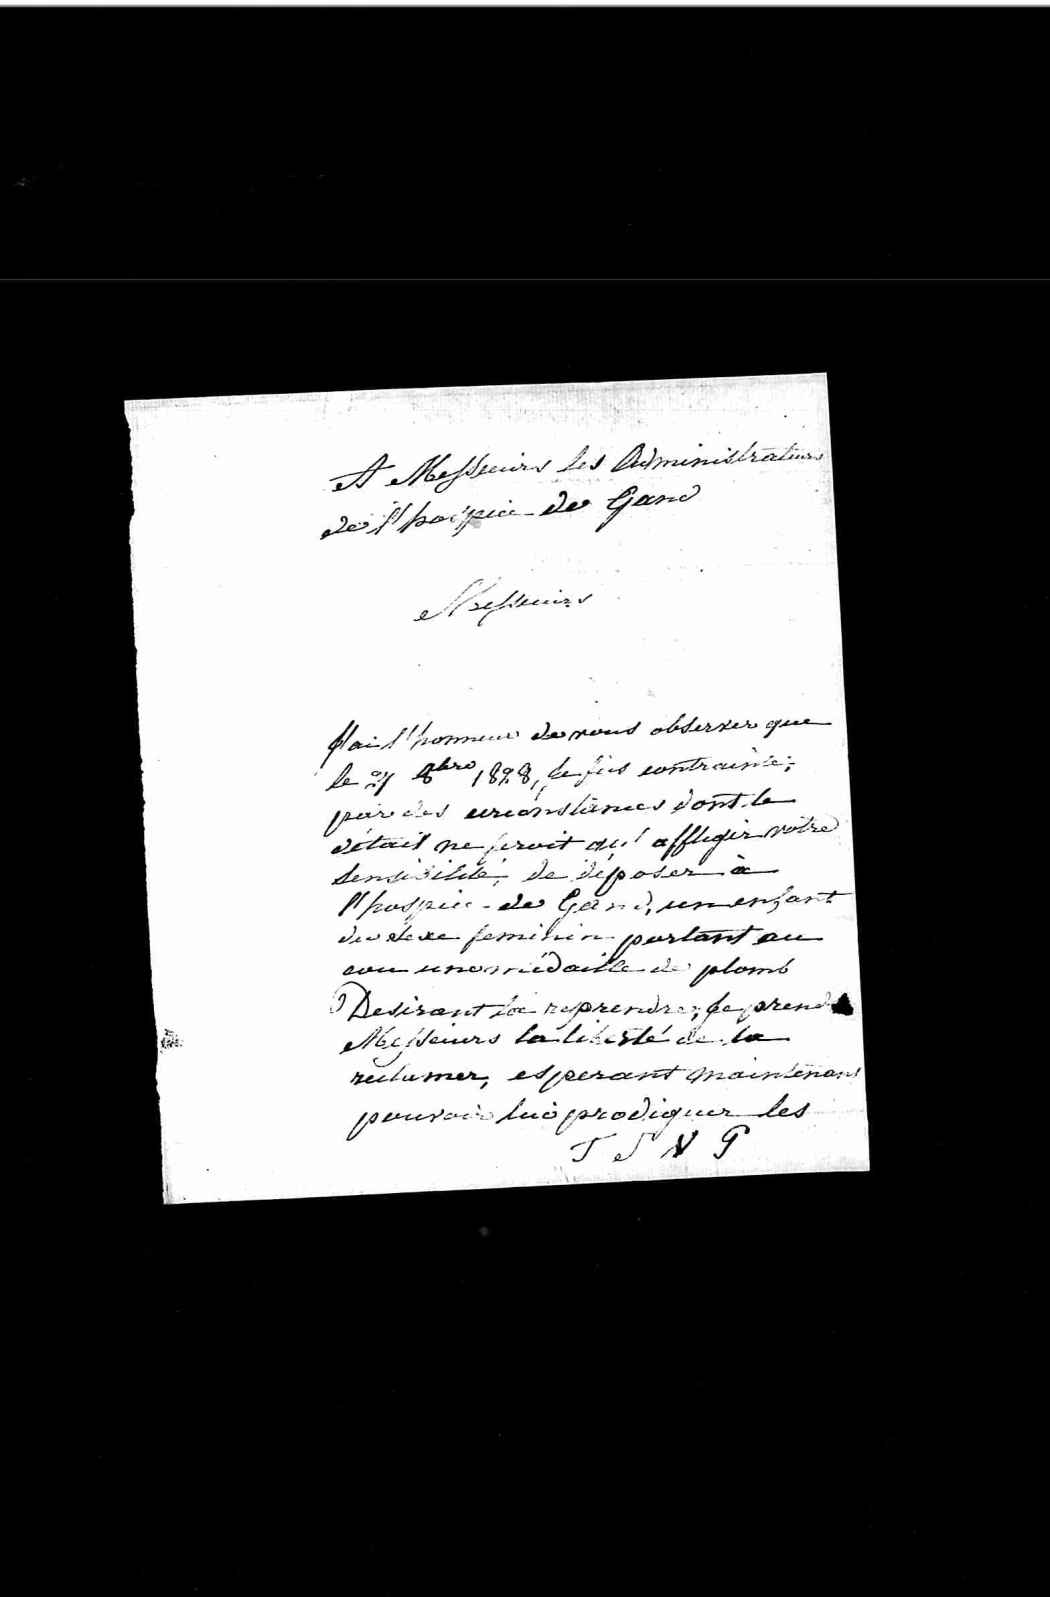 A Messieurs les Administrateurs
de l'hospice de Gand
Messieurs
J'ai l'honneur de vous observer que
le 27 8bre 1828, je fus contrainte,
par des circonstances dont le
détail ne feroit qu'affliger votre
sensibilité, de déposer à
l'hospice de Gand, un enfant
du sexe feminin portant au
cou une médaille de plomb
Desirant la reprendre, je prends
Messieurs la liberté de la
reclamer, esperant maintenant
pouvoir lui prodiguer les
T S V P